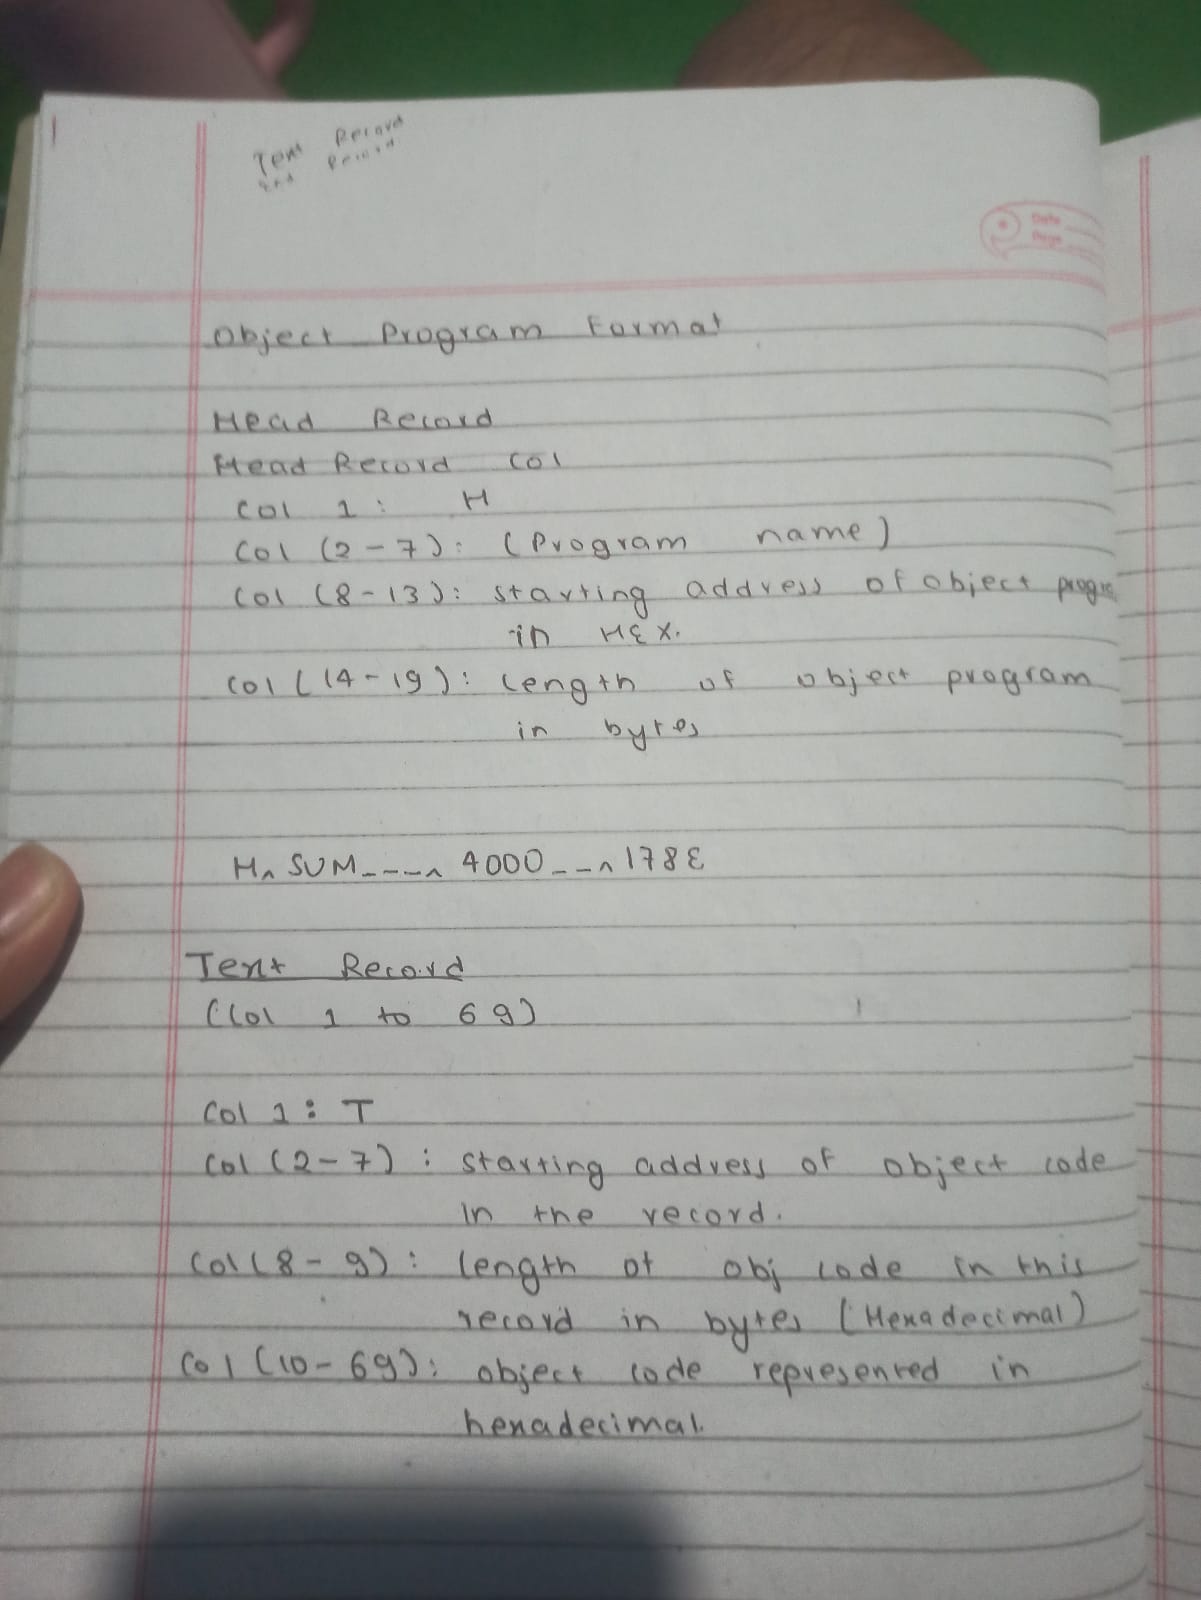 Text Record
End Record
Date
Page
Object Program Format
Head Record
Head Record Col
Col 1 : H
Col (2-7): (Program name)
Col (8-13): starting address of object progra
in HEX.
Col (14-19): length of object program
in bytes
H^ SUM----^ 4000--^178E
Text Record
(Col 1 to 69)
Col 1: T
Col (2-7) : starting address of object code
in the record.
Col (8-9) : length of obj code in this
record in bytes (Hexadecimal)
Col (10-69): object code represented in
hexadecimal.